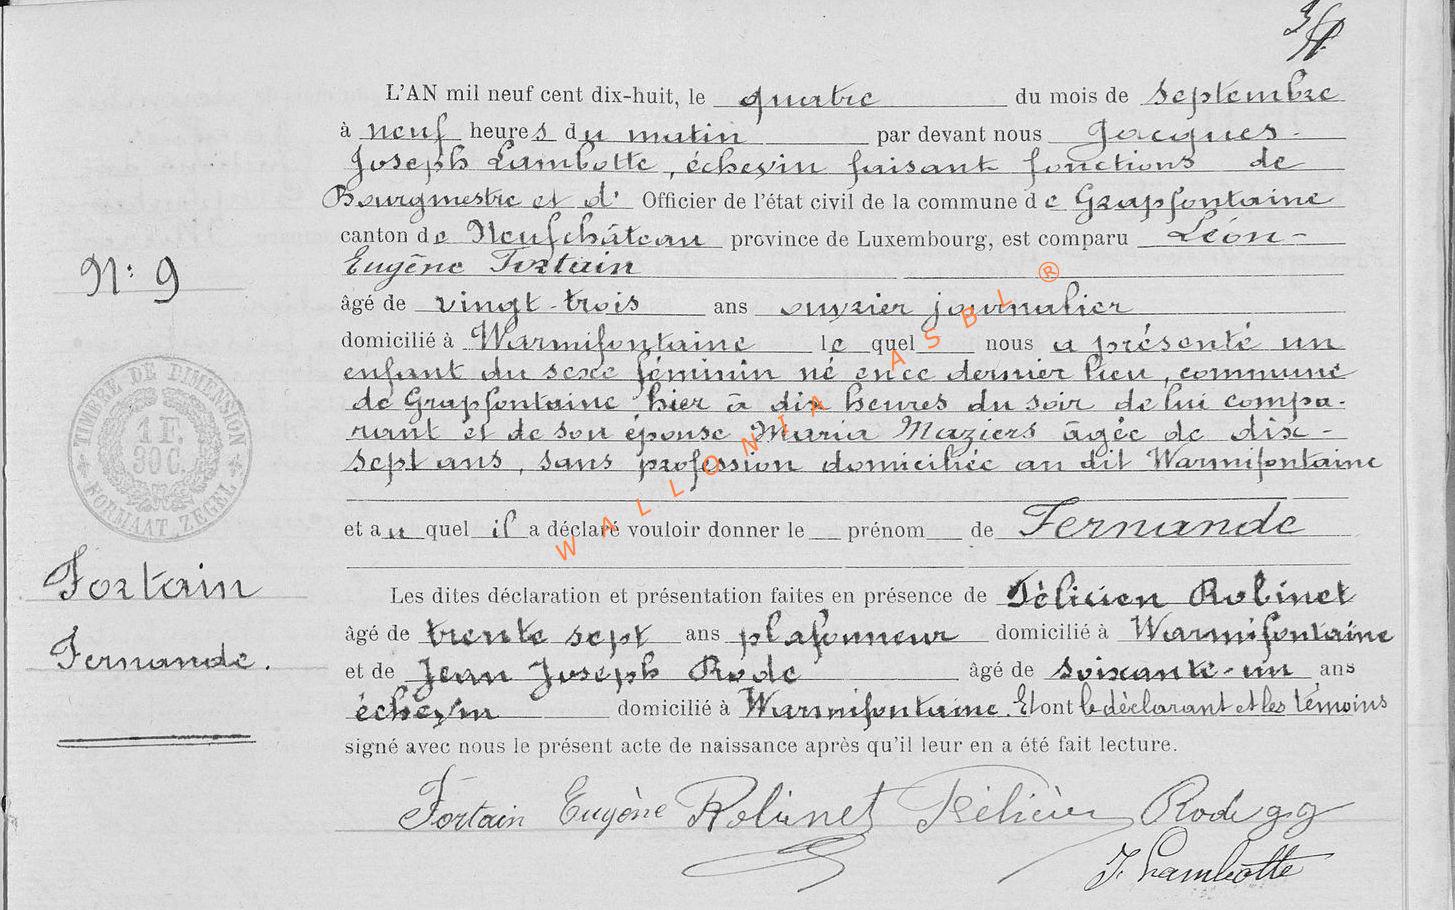 L'AN mil neuf cent dix-huit, le quatre du mois de septembre
à neuf heures du matin par devant nous Jacques-
Joseph Lambotte, échevin faisant fonctions de
Bourgmestre et d' Officier de l'état civil de la commune de Grapfontaine
canton de Neufchâteau province de Luxembourg, est comparu Léon-
Eugène Fortain
N° 9
âgé de vingt-trois ans ouvrier journalier
domicilié à Warmifontaine le quel nous a présenté un
enfant du sexe féminin né en ce dernier lieu, commune
de Grapfontaine hier à dix heures du soir de lui compa-
rant et de son épouse Maria Maziers âgée de dix-
sept ans, sans profession domiciliée au dit Warmifontaine
TIMBRE DE DIMENSION
1 F.
30 C.
FORMAAT ZEGEL
WALLONIA ASBL ®
et au quel il a déclaré vouloir donner le prénom de Fernande
Fortain
Fernande.
Les dites déclaration et présentation faites en présence de Félicien Robinet
âgé de trente sept ans plafonneur domicilié à Warmifontaine
et de Jean Joseph Rode âgé de soixante-un ans
échevin domicilié à Warmifontaine. Et ont le déclarant et les témoins
signé avec nous le présent acte de naissance après qu'il leur en a été fait lecture.
Fortain Eugène Robinet Félicien Rode
J. Lambotte